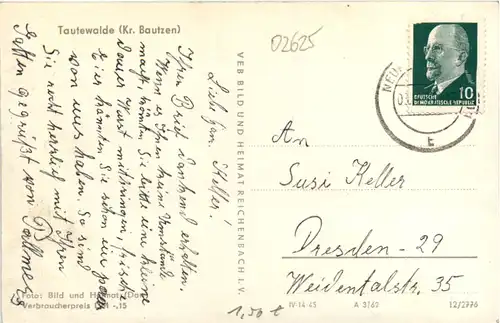 Tautewalde (Kr. Bautzen)
Liebe Fam. Keller!
Ihren Brief dankend erhalten.
Wenn es Ihnen keine Umstände
macht, könnten Sie bitte eine kleine
Dauer Wurst mitbringen, frische
Eier könnten Sie schon ein paar
von uns haben. So sind
Sie recht herzlich mit Ihren
Gatten gegrüßt von
Foto: Bild und Heimat
Verbraucherpreis DM -,15
VEB BILD UND HEIMAT REICHENBACH I. V.
02625
10
DEUTSCHE
DEMOKRATISCHE REPUBLIK
t
An
Susi Keller
Dresden - 29
Weidentalstr. 35
1,50 €
IV-14-45 A 3/62 12/2776